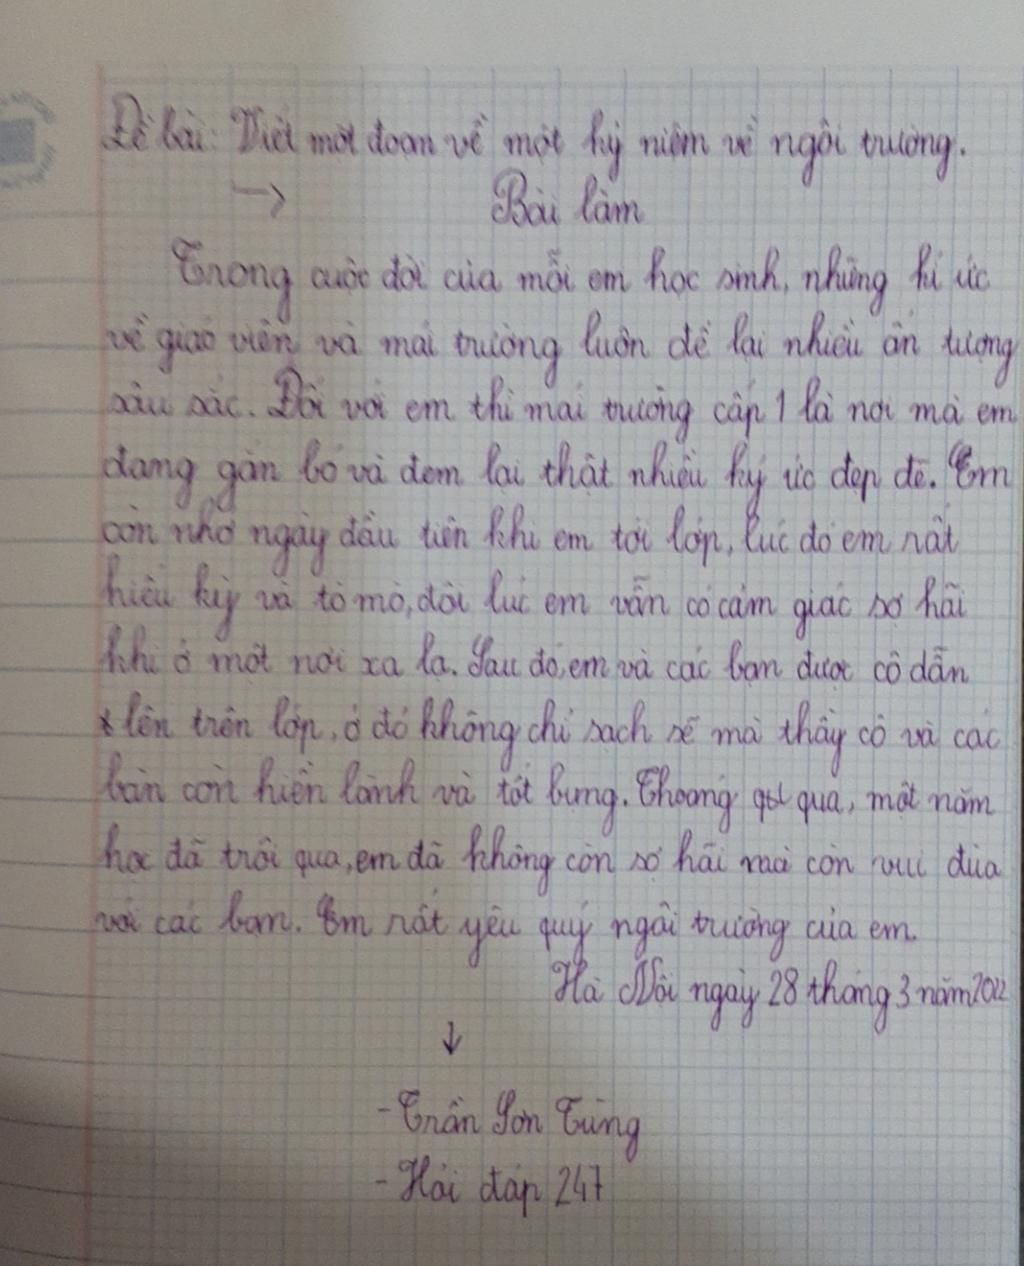 Đề bài: Viết một đoạn về một kỷ niệm về ngôi trường.
→ Bài làm
Trong cuộc đời của mỗi em học sinh, những kí ức
về giáo viên và mái trường luôn để lại nhiều ấn tượng
sâu sắc. Đối với em thì mái trường cấp 1 là nơi mà em
đang gắn bó và đem lại thật nhiều ký ức đẹp đẽ. Em
còn nhớ ngày đầu tiên khi em tới lớp, lúc đó em rất
hiếu kỳ và tò mò, đôi lúc em vẫn có cảm giác sợ hãi
khi ở một nơi xa lạ. Sau đó, em và các bạn được cô dẫn
lên trên lớp, ở đó không chỉ sạch sẽ mà thầy cô và các
bạn còn hiền lành và tốt bụng. Thoáng qua, một năm
học đã trôi qua, em đã không còn sợ hãi mà còn vui đùa
với các bạn. Em rất yêu quý ngôi trường của em.
Hà Nội ngày 28 tháng 3 năm 2022
↓
- Trần Sơn Tùng
- Hỏi đáp 247